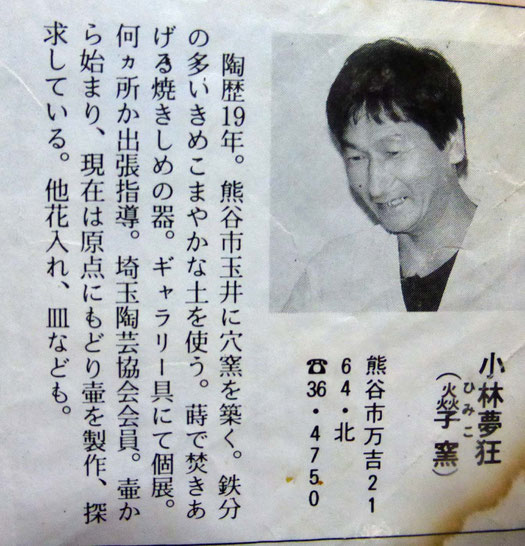 小林夢狂
ひみこ
（焱子窯）
熊谷市万吉21
64・北
☎36・4750
陶歴19年。熊谷市玉井に穴窯を築く。鉄分
の多いきめこまやかな土を使う。蒔で焚きあ
げる焼きしめの器。ギャラリー具にて個展。
何ヵ所か出張指導。埼玉陶芸協会会員。壷か
ら始まり、現在は原点にもどり壷を製作、探
求している。他花入れ、皿なども。